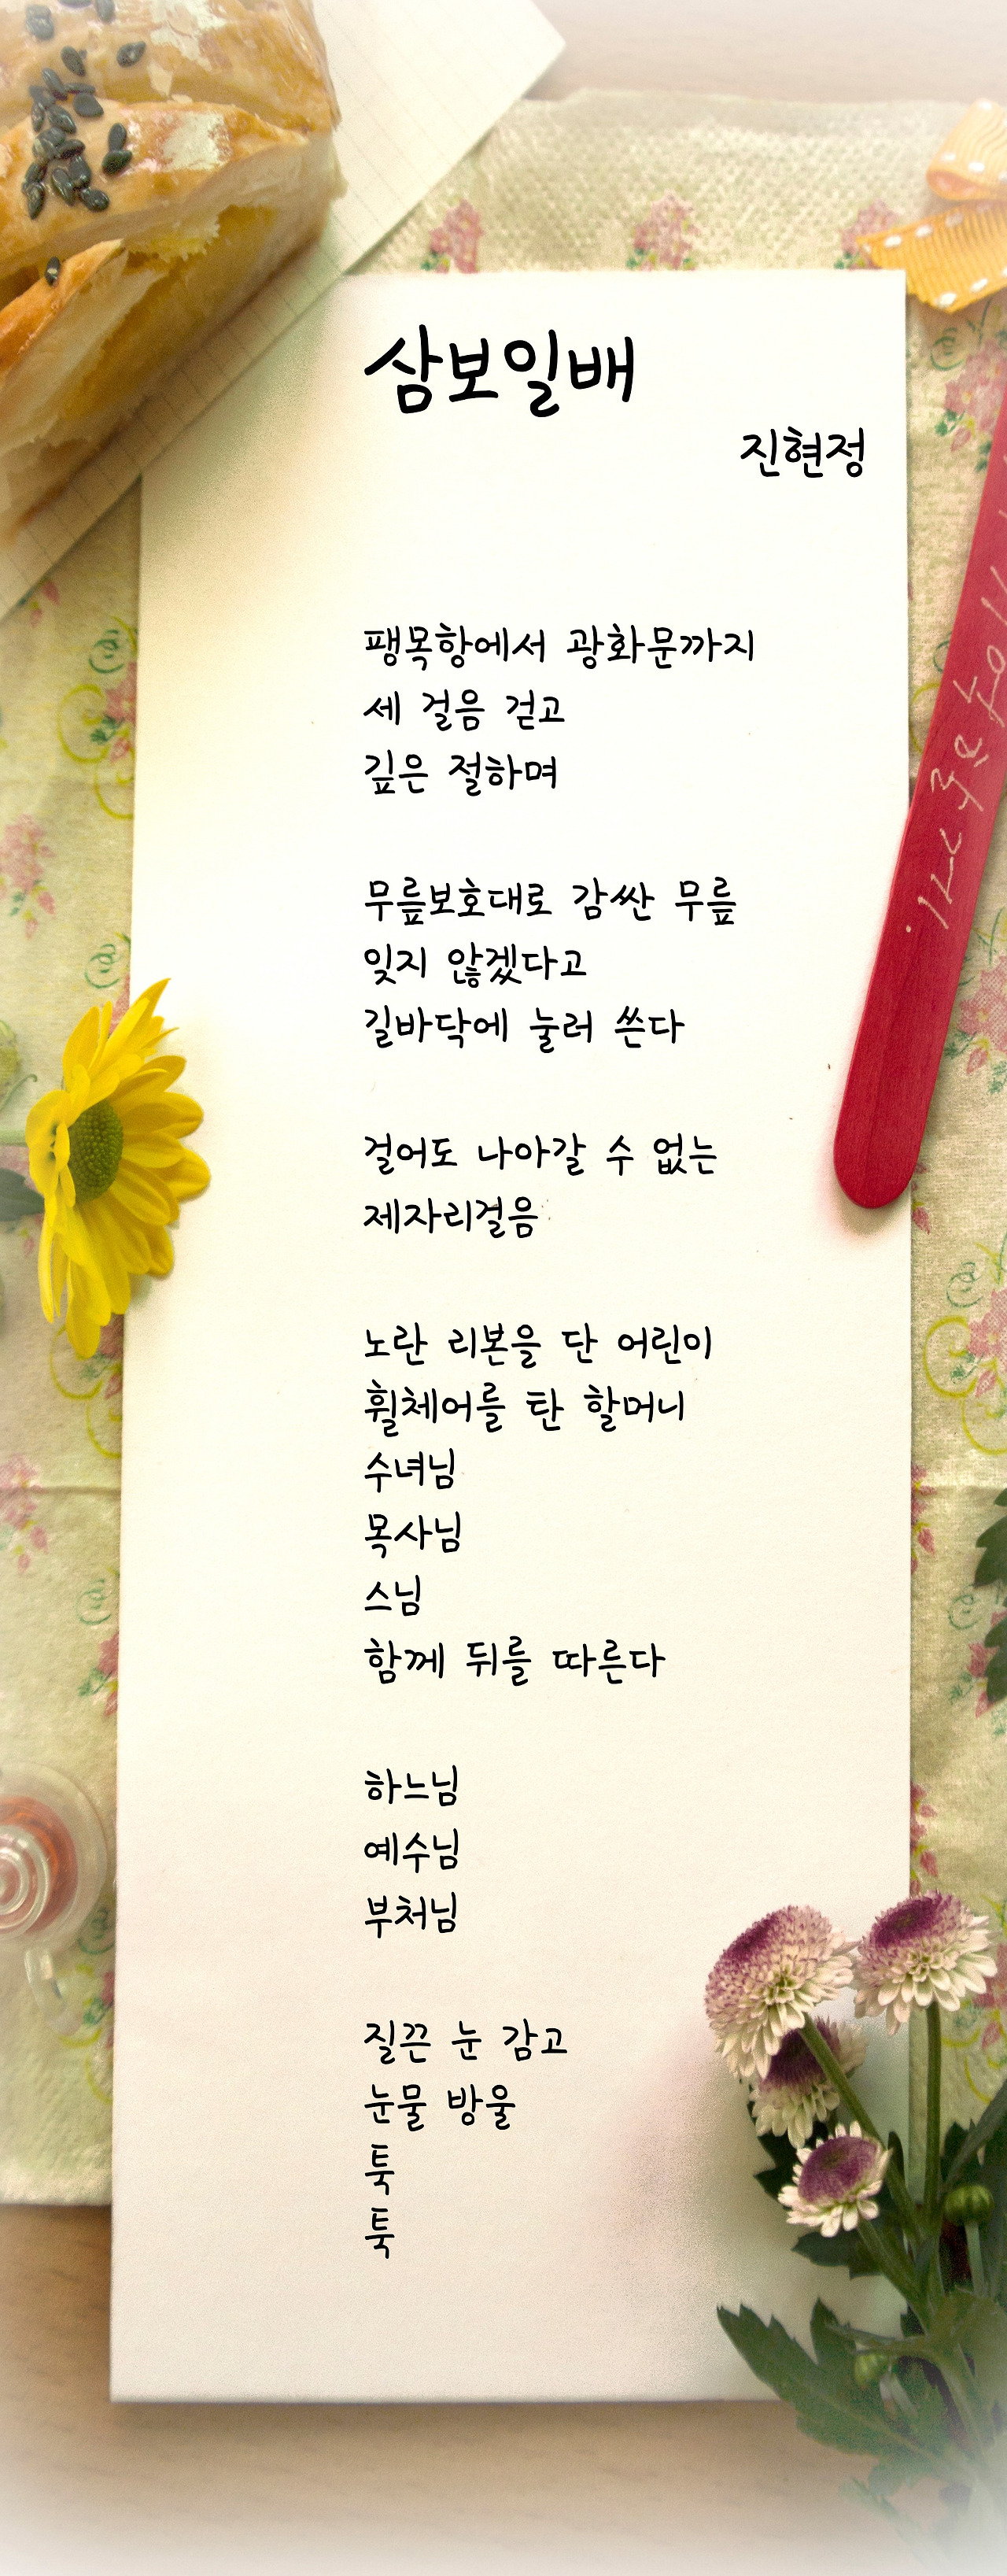 삼보일배
진현정
팽목항에서 광화문까지
세 걸음 걷고
깊은 절하며
무릎보호대로 감싼 무릎
잊지 않겠다고
길바닥에 눌러 쓴다
걸어도 나아갈 수 없는
제자리걸음
노란 리본을 단 어린이
휠체어를 탄 할머니
수녀님
목사님
스님
함께 뒤를 따른다
하느님
예수님
부처님
질끈 눈 감고
눈물 방울
툭
툭